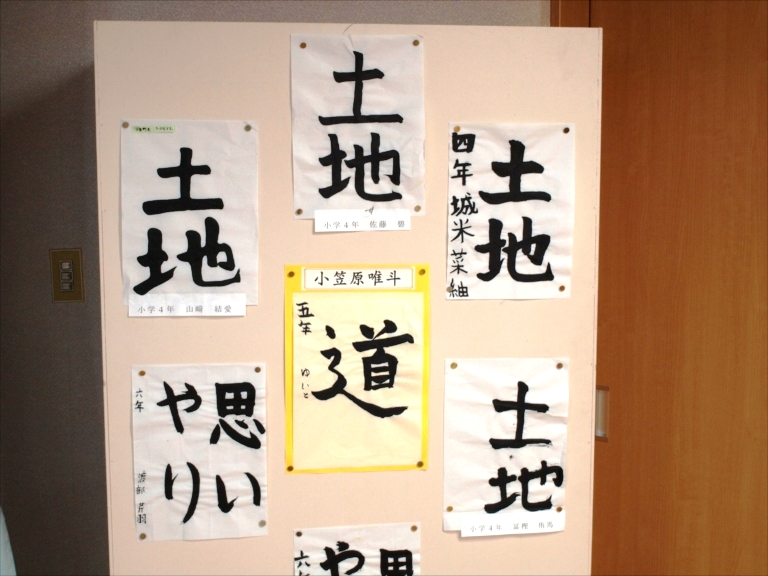 土地
小学4年 佐藤 碧
土地
小学4年 山﨑 結愛
土地
四年 城米菜紬
小笠原唯斗
道
五年 ゆいと
思い
やり
六年 渡部 芹羽
土地
小学4年
思
や
六年